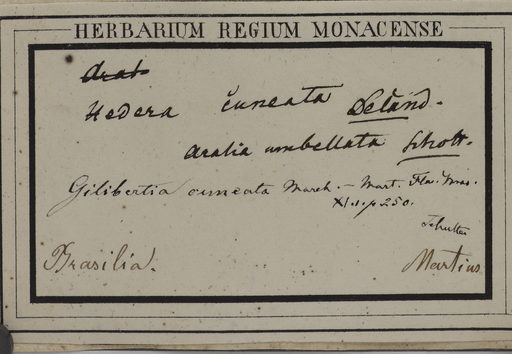 HERBARIUM REGIUM MONACENSE
Aral.
Hedera cuneata DeCand.
Aralia umbellata Schott.
Gilibertia cuneata March. – Mart. Fla. Bras.
XI. 1. p 250.
Brasilia.
Martius